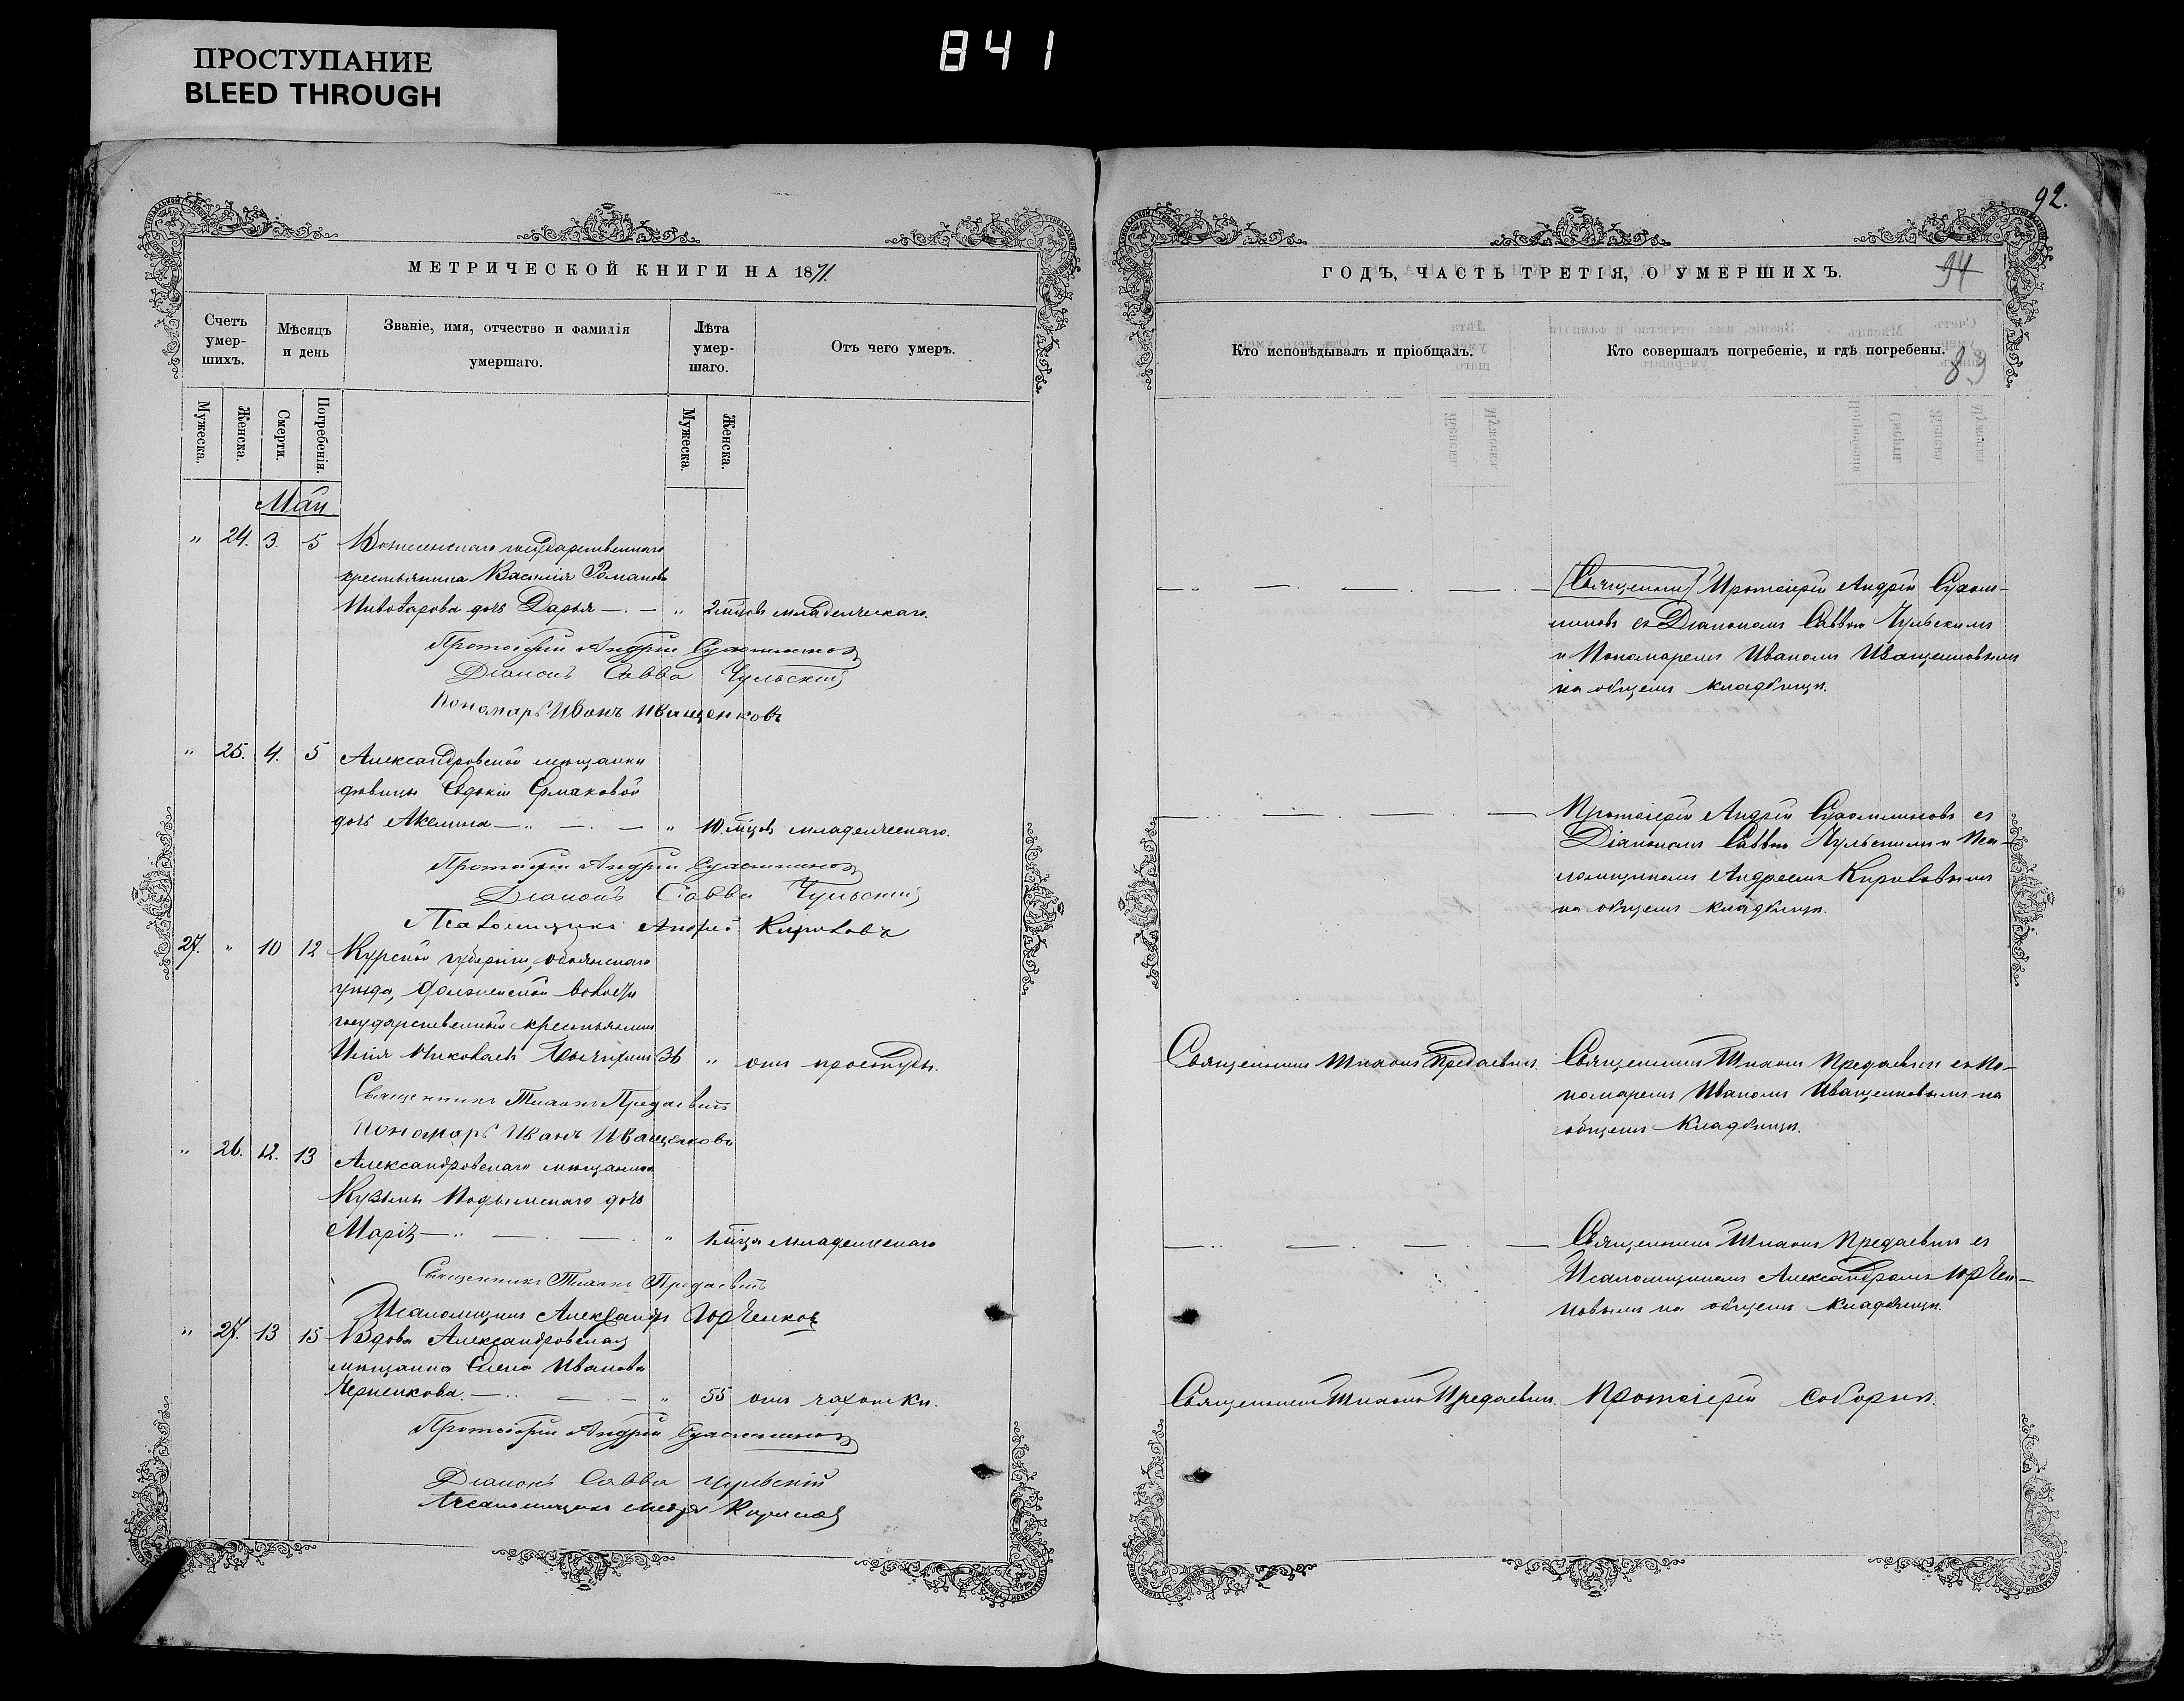 ПРОСТУПАНИЕ
BLEED THROUGH
841
МЕТРИЧЕСКОЙ КНИГИ НА 1871.
Счетъ умер-шихъ.
Мѣсяцъ и день
Званіе, имя, отчество и фамилія умершаго.
Лѣта умер-шаго.
Отъ чего умеръ.
Мужеска.
Женска.
Смерти.
Погребенія.
Мужеска.
Женска.
Май
" 24. 3. 5 государственнаго
крестьянина Василія Романова
Пивоварова дочь Дарья — " 2 мцовъ младенческаго.
Протоіерей Андрей
Діаконъ Савва Чульскій
Пономарь Иванъ Иващенковъ
" 25. 4. 5 Александровской мѣщанки
дѣвицы Евдокіи Ермаковой
дочь Акелина — " 10. мцовъ младенческаго.
Протоіерей Андрей
Діаконъ Савва Чульскій
Псаломщикъ Андрей Кириковъ
27. " 10 12 Курской губерніи, обоянскаго
уѣзда, волости
государственный крестьянинъ
Илія Николаевъ 36 " отъ простуды.
Священникъ Тихонъ Предаевичъ
Пономарь Иванъ Иващенковъ
" 26. 12. 13 Александровскаго мѣщанина
Кузьмы дочь
Марія — " 1 мца младенческаго
Священникъ Тихонъ Предаевичъ
Псаломщикъ Александръ Юрченковъ
" 27. 13 15 Вдова Александровская
мѣщанка Елена Иванова
Черненкова. — " 55 отъ чахотки.
Протоіерей Андрей
Діаконъ Савва Чульскій
Псаломщикъ Андрей Кириковъ
92.
ГОДЪ, ЧАСТЬ ТРЕТІЯ, О УМЕРШИХЪ.
94
Кто исповѣдывалъ и пріобщалъ.
Кто совершалъ погребеніе, и гдѣ погребены.
89
(Священникъ) Протоіерей Андрей
съ Діакономъ Саввою Чульскимъ
и Пономаремъ Иваномъ Иващенковымъ
на общемъ кладбищѣ.
Протоіерей Андрей съ
Діакономъ Саввою Чульскимъ и Пса-
ломщикомъ Андреемъ Кириковымъ
на общемъ кладбищѣ.
Священникъ Тихонъ Предаевичъ.
Священникъ Тихонъ Предаевичъ съ По-
номаремъ Иваномъ Иващенковымъ на
общемъ кладбищѣ.
Священникъ Тихонъ Предаевичъ съ
Псаломщикомъ Александромъ Юрчен-
ковымъ на общемъ кладбищѣ.
Священникъ Тихонъ Предаевичъ.
Протоіерей соборнѣ.